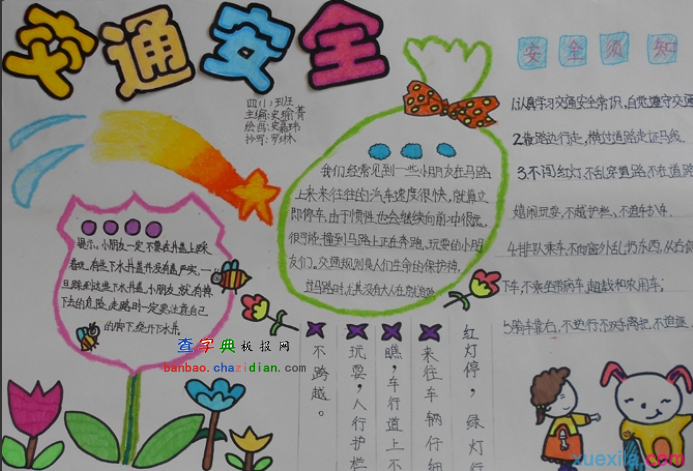 交通安全
四(1)班
主编:史瑜菁
绘画:史嘉玮
抄写:
安全须知
1.认真学习交通安全常识,自觉遵守交通
2.靠路边行走,横过道路走斑马线
3.不闯红灯,不乱穿马路,不在道路
嬉闹玩耍,不越护栏、不追车扒车
4.排队乘车,不向窗外乱扔东西,从右侧
下车,不乘坐带病车,超载和农用车;
5.骑车靠右,不逆行不双手离把,不追逐
我们经常见到一些小朋友在马路
上来来往往的汽车速度很快,就算立
即停车,由于惯性也会继续向前冲很远,
很可能撞到马路上正在奔跑、玩耍的小朋
友们。交通规则是人们生命的保护神,
过马路时,尤其没有大人在旁
提示:小朋友一定不要在井盖上踩
着玩,有些下水井盖并没有盖严实,一
旦踩到这些下水井盖,小朋友就有掉
下去的危险,走路时一定要注意自己
的脚下,绕开下水井。
红灯停,绿灯行
来往车辆仔细
瞧,车行道上不
玩耍,人行护栏
不跨越。
查字典板报网
banbao.chazidian.com
xuexila.com